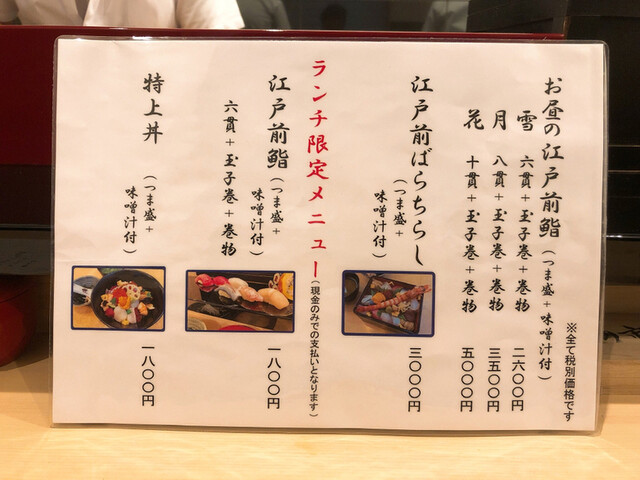 ※全て税別価格です
お昼の江戸前鮨(つま盛+味噌汁付)
雪 六貫+玉子巻+巻物 二六〇〇円
月 八貫+玉子巻+巻物 三五〇〇円
花 十貫+玉子巻+巻物 五〇〇〇円
江戸前ばらちらし
(つま盛+
味噌汁付)
三〇〇〇円
ランチ限定メニュー(現金のみでの支払いとなります)
江戸前鮨(つま盛+
味噌汁付)
六貫+玉子巻+巻物
一八〇〇円
特上丼
(つま盛+
味噌汁付)
一八〇〇円